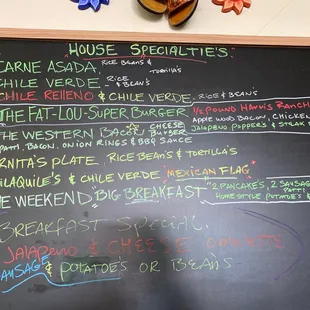 HOUSE SPECIALTIE'S.
CARNE ASADA. RICE BEANS & TORTILLA'S
CHILE VERDE. RICE & BEAN'S
CHILE RELLENO & CHILE VERDE. RICE & BEAN'S
THE FAT-LOU-SUPER BURGER 1/2 POUND HARRIS RANCH
APPLE WOOD BACON, CHICKEN
JALAPENO POPPERS & STEAK
THE WESTERN BACON CHEESE BURGER
PATTI, BACON, ONION RINGS & BBQ SAUCE
RNITA'S PLATE. RICE BEANS & TORTILLA'S
ILAQUILE'S & CHILE VERDE "MEXICAN FLAG"
E WEEKEND "BIG BREAKFAST" "2 PANCAKES, 2 SAUSAG
PATTI
HOMESTYLE POTATOES
BREAKFAST SPECIAL.
JALAPENO & CHEESE
SAUSAGE & POTATOE'S OR BEAN'S